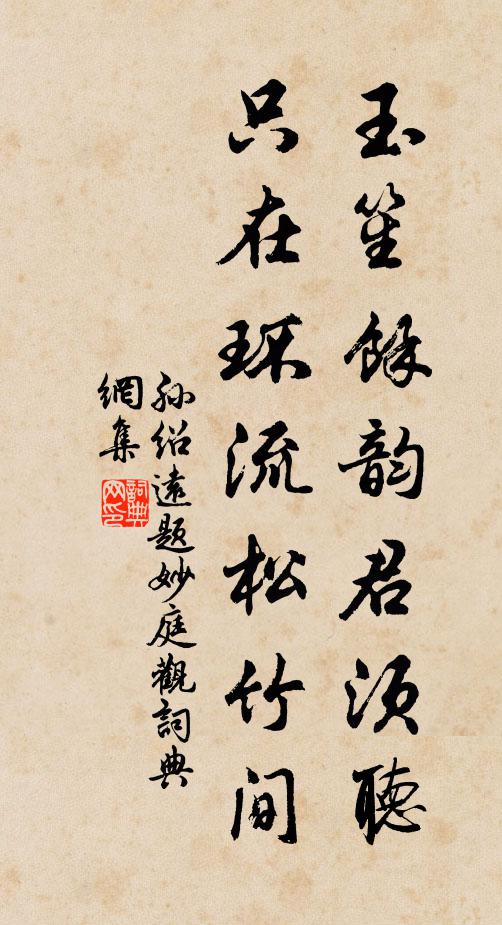 玉笙餘韵君须聽
只在环流松竹间
孙绍遠题妙庭觀詞典
網集
詞典网印